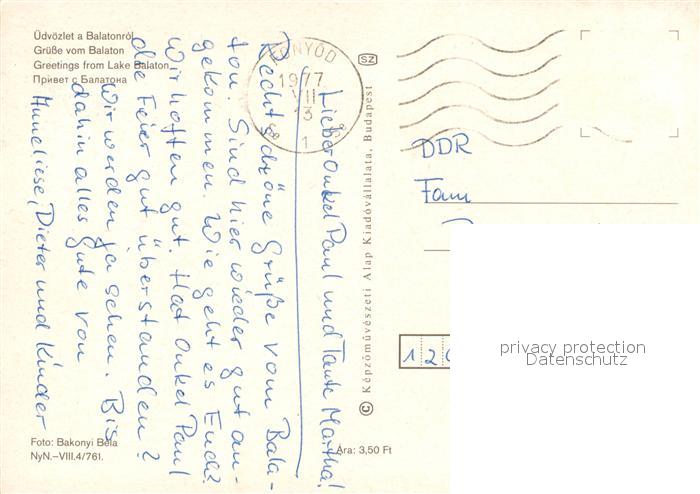 Üdvözlet a Balatonról
Grüße vom Balaton
Greetings from Lake Balaton
Привет с Балатона
FONYÓD
1977
VII
13
1
SZ
Lieber Onkel Paul und Tante Martha!
Recht schöne Grüße vom Bala-
ton! Sind hier wieder gut an-
gekommen. Wie geht es Euch?
Wir hoffen gut. Hat Onkel Paul
die Feier gut überstanden?
Wir werden ja sehen. Bis
dahin alles Gute von
Anneliese, Dieter und Kinder
© Képzőművészeti Alap Kiadóvállalata, Budapest
DDR
Fam
120
privacy protection
Datenschutz
Foto: Bakonyi Béla
NyN.–VIII.4/761.
Ára: 3,50 Ft